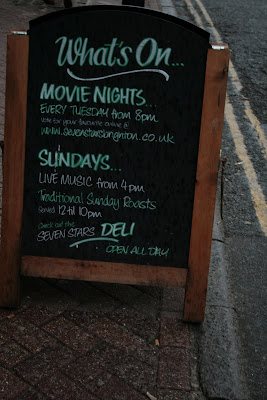 What's On...
MOVIE NIGHTS...
EVERY TUESDAY from 8pm
Vote for your favourite online @
www.sevenstarsbrighton.co.uk
SUNDAYS...
LIVE MUSIC from 4pm
Traditional Sunday Roasts
Served 12 til 10pm
Check out the
SEVEN STARS DELI
OPEN ALL DAY